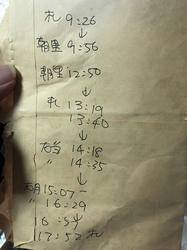 札 9:26
↓
朝里 9:56
朝里 12:50
↓
札 13:19
13:40
↓
14:18
〃 14:35
↓
15:07
〃 16:29
↓
17:52 札